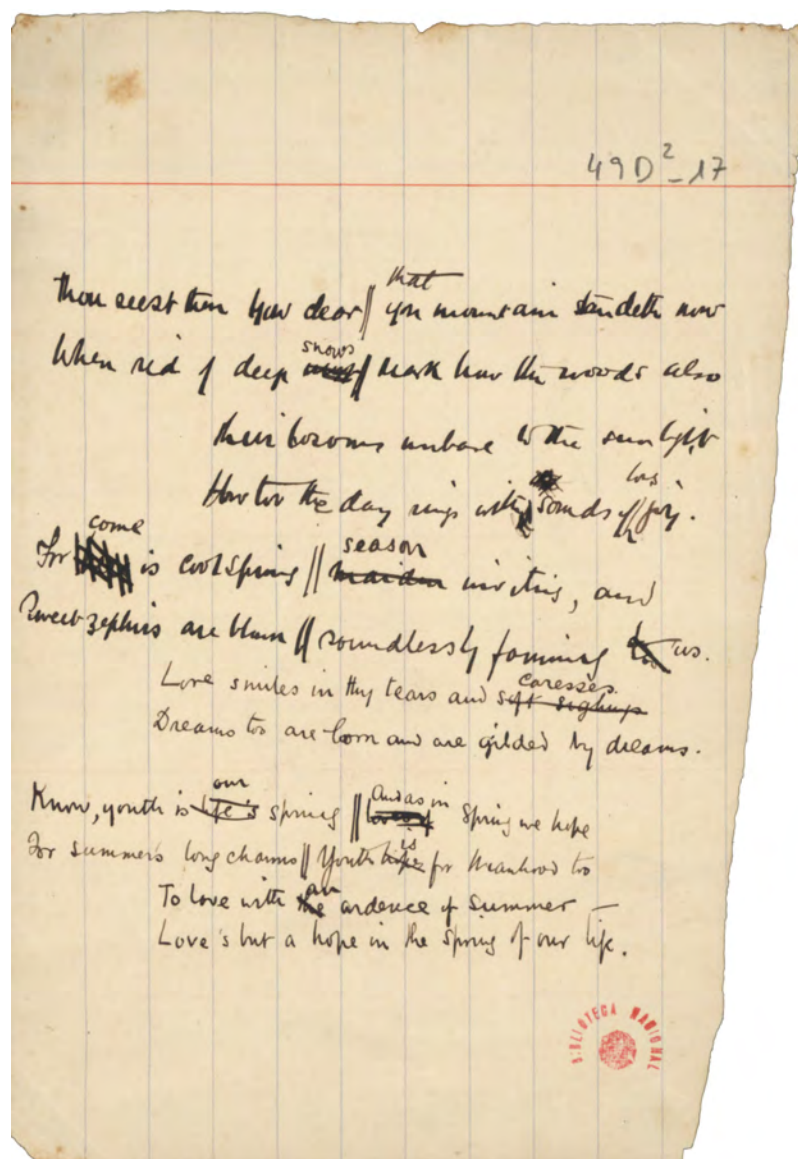 49D²–17
that
Thou seest then how clear // yon mountain standeth now
snows
When rid of deep // mark how the woods also
their bosoms unbare to the sunlight
How too the day rings with sounds of joy.
come season
For is cool spring // maiden inviting, and
Sweet zephirs are blown // soundlessly fanning us.
caresses
Love smiles in thy tears and soft sighings
Dreams too are born and are gilded by dreams.
our And as in
Know, youth is life's spring // spring we hope
is
For summer's long charms // Youth hope for Manhood too
an
To love with the ardence of summer —
Love's but a hope in the spring of our life.
BIBLIOTECA NACIONAL